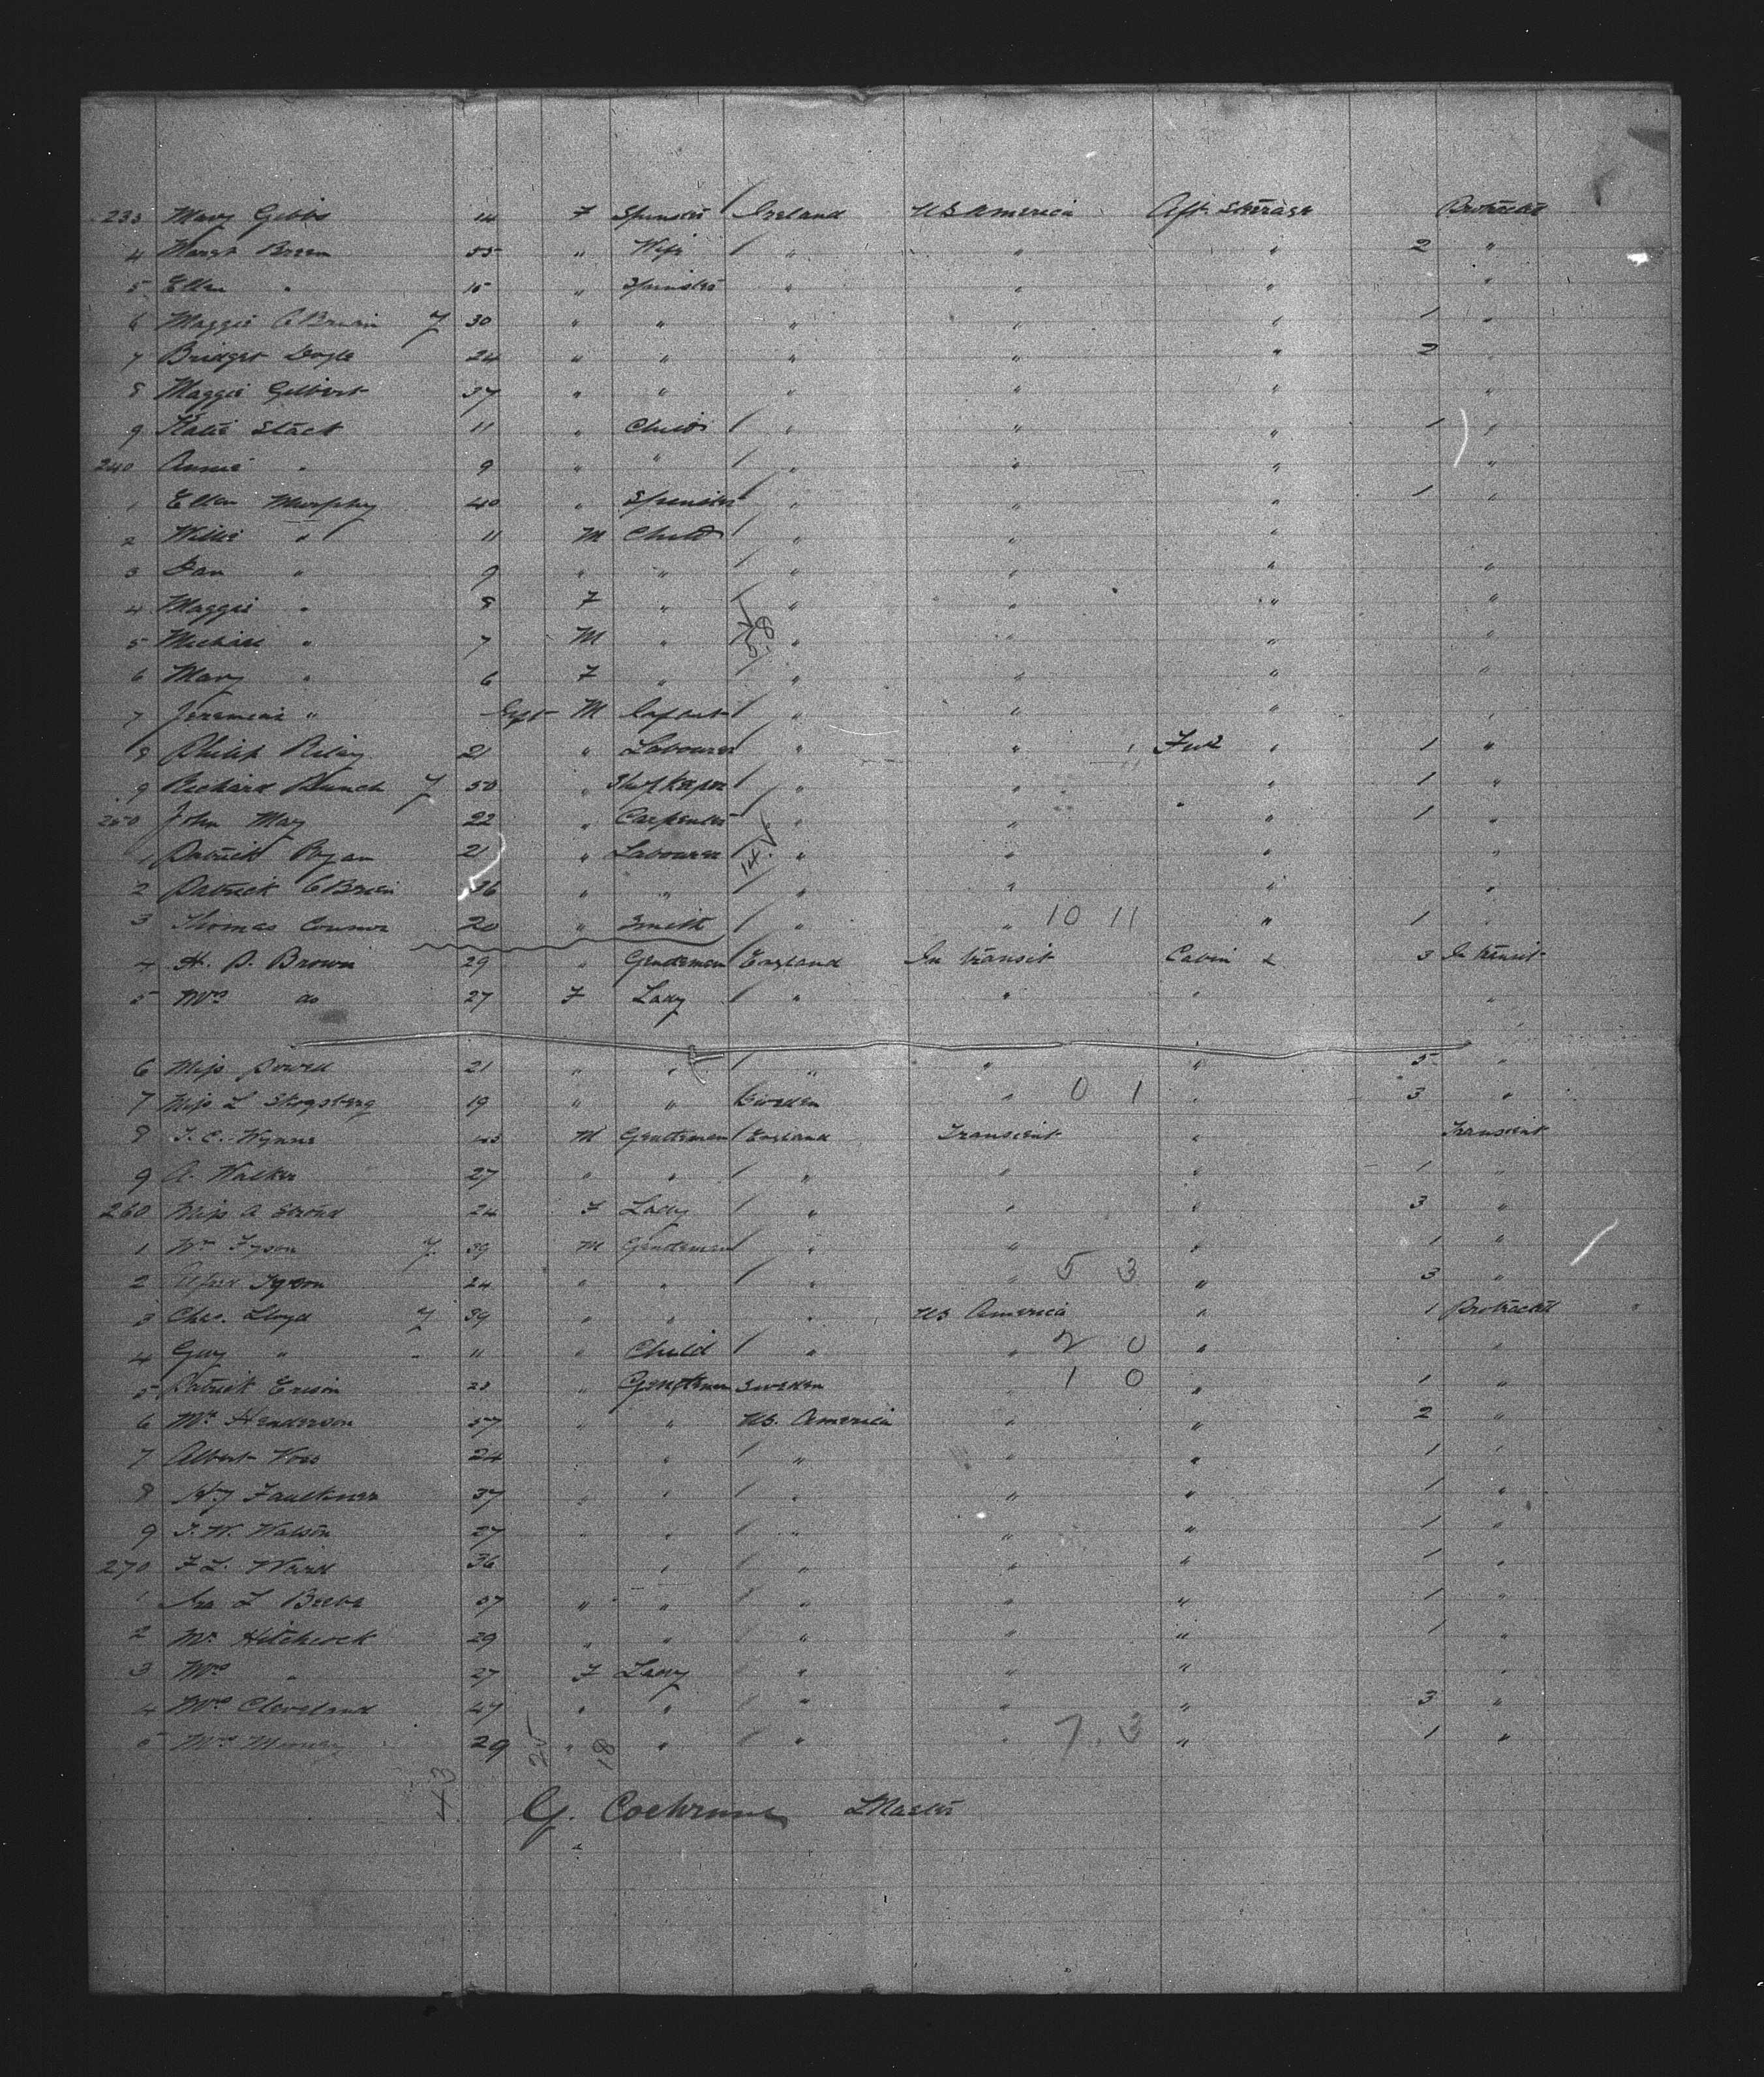 233 Mary Gibbs 14 F Spinster Ireland U.S. America Aft Steerage Protracted
4 Margt Breen 55 " Wife " " " 2 "
5 Ellen " 15 " Spinster " " " "
6 Maggie O'Brien 30 " " " " " 1 "
7 Bridget Doyle 24 " " " " " 2 "
8 Maggie Gilbert 37 " " " " " "
9 Katie Stack 11 " Child " " " 1 "
240 Annie " 9 " " " " " "
1 Ellen Murphy 40 " Spinster " " " 1 "
2 Willie " 11 M Child " " "
3 Dan " 9 " " " " " "
4 Maggie " 8 F " " " " "
5 Michael " 7 M " " " " "
6 Mary " 6 F " " " " "
7 Jeremiah " M Infant " " " "
8 Philip Riley 21 " Labourer " " Fwd " 1 "
9 Richard Bunch 50 " Shopkeeper " " " 1 "
250 John May 22 " Carpenter " " " 1 "
1 Patrick Ryan 21 " Labourer " " " "
2 Patrick O'Brien 36 " " " " " "
3 Thomas Connor 20 " Smith " " 10 11 " 1 "
4 H. P. Brown 29 " Gentleman England In transit Cabin 3 In transit
5 Mrs do 27 F Lady " " " "
6 Miss Powell 21 " " " " " 5 "
7 Miss L Skogsberg 19 " " Sweden " 0 1 " 3 "
8 T. C. Wynne 43 M Gentleman England Transient " Transient
9 A. Walker 27 " " " " " 1 "
260 Miss A Stroud 24 F Lady " " " 3 "
1 Wm Tyson 39 M Gentleman " " " 1 "
2 Alfred Tyson 24 " " " " 5 3 " 3 "
3 Chas. Lloyd 39 " " " US America " 1 Protracted
4 Guy " 11 " Child " " 2 0 " "
5 Patrick 23 " Gentleman Sweden 1 0 " 1 "
6 Mr Henderson 57 " " U.S. America " " 2 "
7 Albert Voss 24 " " " " 1 "
8 Hy Faulkner 37 " " " " " 1 "
9 J. W. Watson 27 " " " " " 1 "
270 F L. Ward 36 " " " " 1 "
1 Ira L Beebe 37 " " " " " 1 "
2 Mr Hitchcock 29 " " " " " 1 "
3 Mrs " 27 F Lady " " " "
4 Mrs Cleveland 47 " " " " " 3 "
5 29 " " " " 7 3 " 1 "
43 25 18
G. Cochrane Master